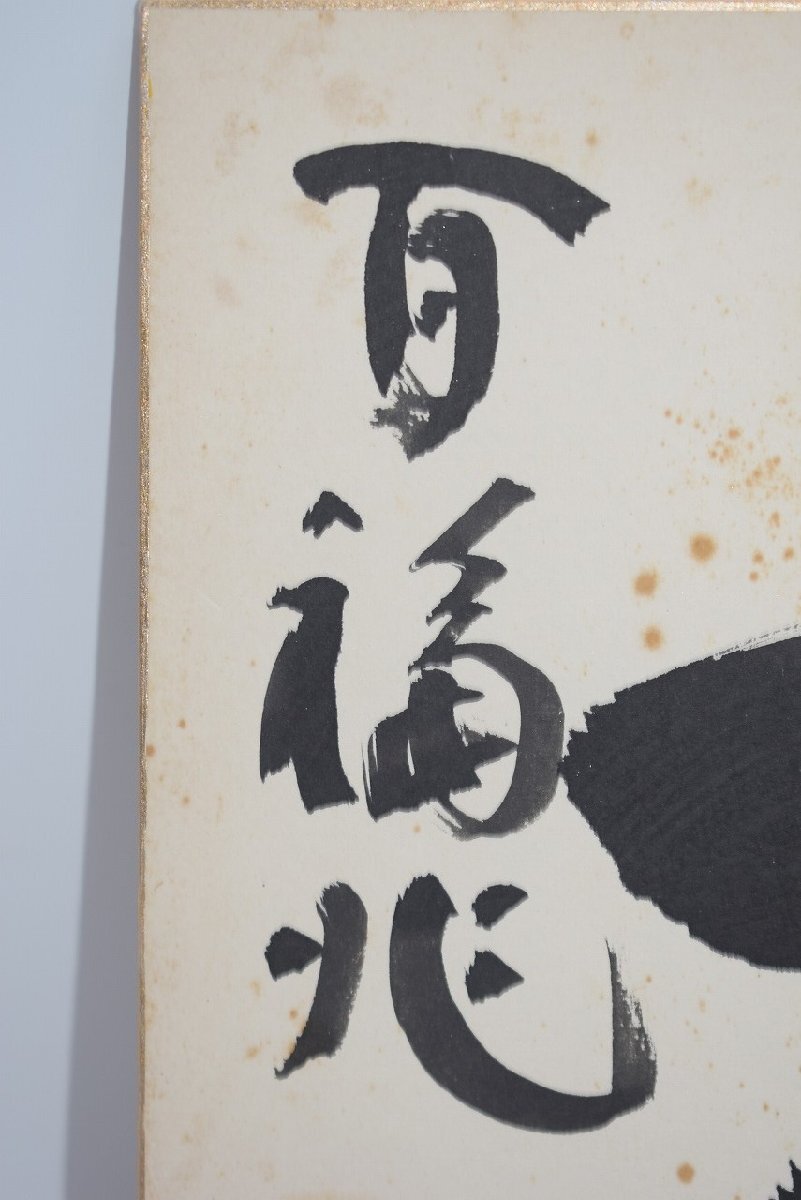 百福兆